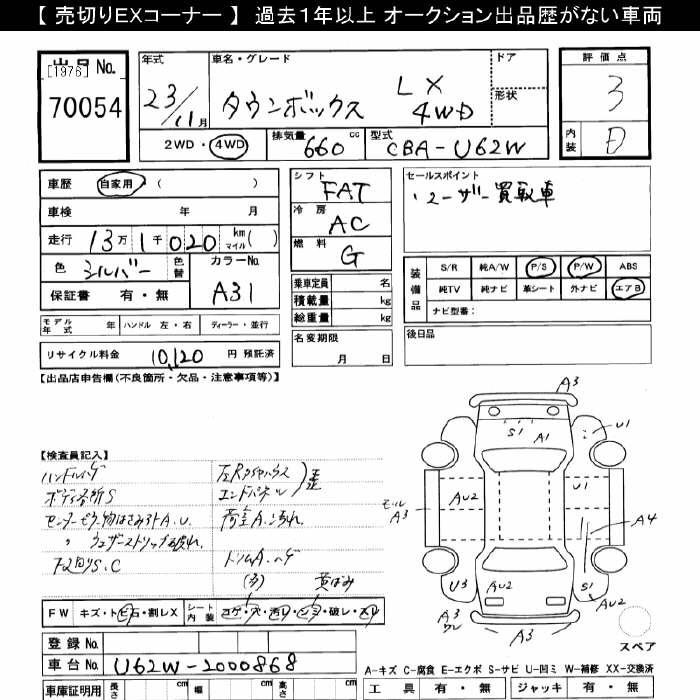 【 売切りEXコーナー 】 過去1年以上 オークション出品歴がない車両
出品 No.
[1976]
70054
年式
23/11月
車名・グレード
タウンボックス
LX
4WD
ドア
形状
評価点
3
内装
D
2WD・4WD
排気量
660 cc
型式
CBA-U62W
車歴
自家用・( )
車検 年 月
走行 13万1千020 km マイル( )
色 シルバー 色替
カラーNo.
A31
保証書 有・無
シフト
FAT
冷房
AC
燃料
G
乗車定員 名
積載量 kg
総重量 kg
名変期限
月 日
セールスポイント
・ユーザー買取車
装備品
S/R 純A/W P/S P/W ABS
純TV 純ナビ 革シート 外ナビ エアB
ナビ型番:
後日品
モデル年式 年 ハンドル 左・右 ディーラー・並行
リサイクル料金 10,120 円 預託済
【出品店申告欄(不良箇所・欠品・注意事項等)】
【検査員記入】
ハンドルハゲ
ボディ各所S
センターピラー物はさみ3ト A.U.
〃 ウェザーストリップ破れ
下回りS.C
エンドパネル
歪
荷室A.汚れ
トリムA.ハゲ
(多) 黄ばみ
FW キズ・トビ石・割レX
シート内装 コゲ・穴・汚レ・シミ・破レ・スレ
登録 No.
車台 No. U62W-2000868
車庫証明用 長さ cm 幅 cm 高さ cm
A3
S1
A1
U1
AU2
U1
モール
A3
A4
U3
AU2
S1
AU2
A3
ワレ
A3
スペア
A-キズ C-腐食 E-エクボ S-サビ U-凹ミ W-補修 XX-交換済
工具 有・無 ジャッキ 有・無